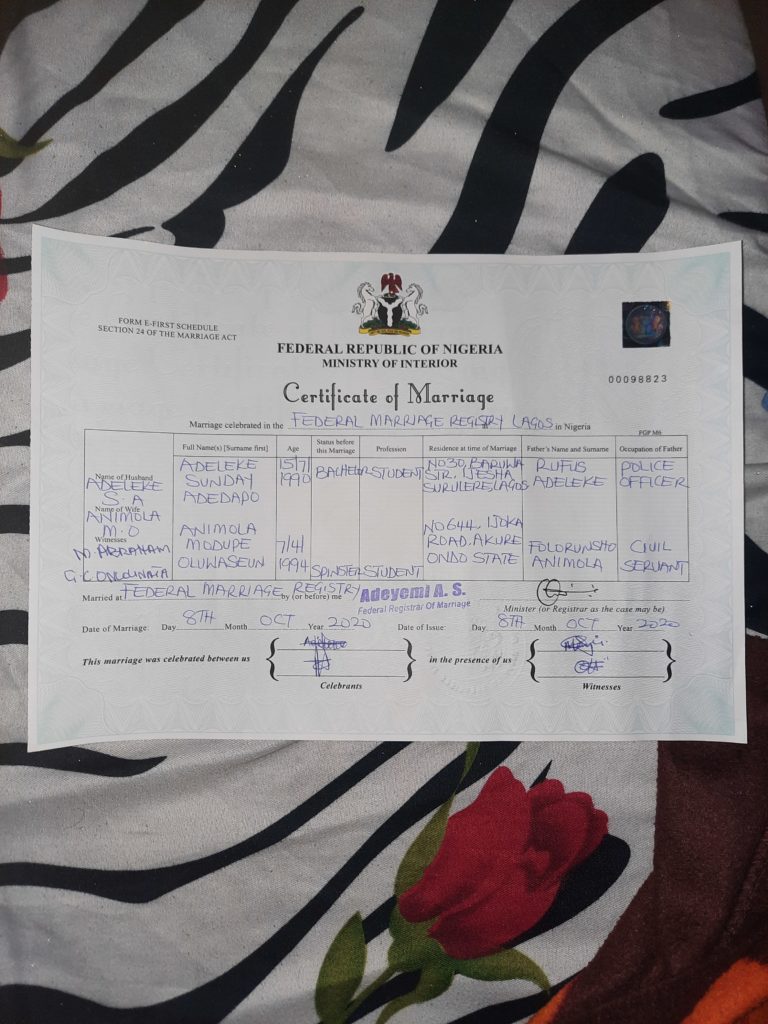 FORM E-FIRST SCHEDULE
SECTION 24 OF THE MARRIAGE ACT
FEDERAL REPUBLIC OF NIGERIA
MINISTRY OF INTERIOR
00098823
Certificate of Marriage
Marriage celebrated in the FEDERAL MARRIAGE REGISTRY LAGOS in Nigeria
PGP M6
Full Name(s) [Surname first] Age Status before this Marriage Profession Residence at time of Marriage Father's Name and Surname Occupation of Father
Name of Husband
ADELEKE S. A
ADELEKE SUNDAY ADEDAPO 15/7/1990 BACHELOR STUDENT NO 30, BARUWA STR. IJESHA SURULERE, LAGOS RUFUS ADELEKE POLICE OFFICER
Name of Wife
ANIMOLA M. O
ANIMOLA MODUPE OLUWASEUN 7/4/1994 SPINSTER STUDENT NO 644, IJOKA ROAD, AKURE ONDO STATE FOLORUNSHO ANIMOLA CIVIL SERVANT
Witnesses
ABRAHAM
Married at FEDERAL MARRIAGE REGISTRY by (or before) me Adeyemi A. S.
Federal Registrar Of Marriage
Minister (or Registrar as the case may be)
Date of Marriage: Day 8TH Month OCT Year 2020 Date of Issue: Day 8TH Month OCT Year 2020
This marriage was celebrated between us in the presence of us
Celebrants Witnesses